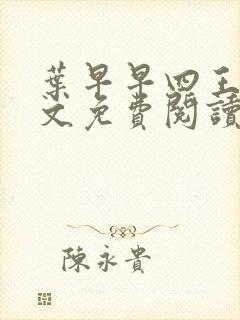 葉早早四王
文免費閱讀
陳永貴